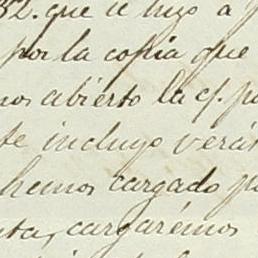 32. que le hizo a
por la copia que
abierto la c/.
te incluyo verá
hemos cargado
cargarémos